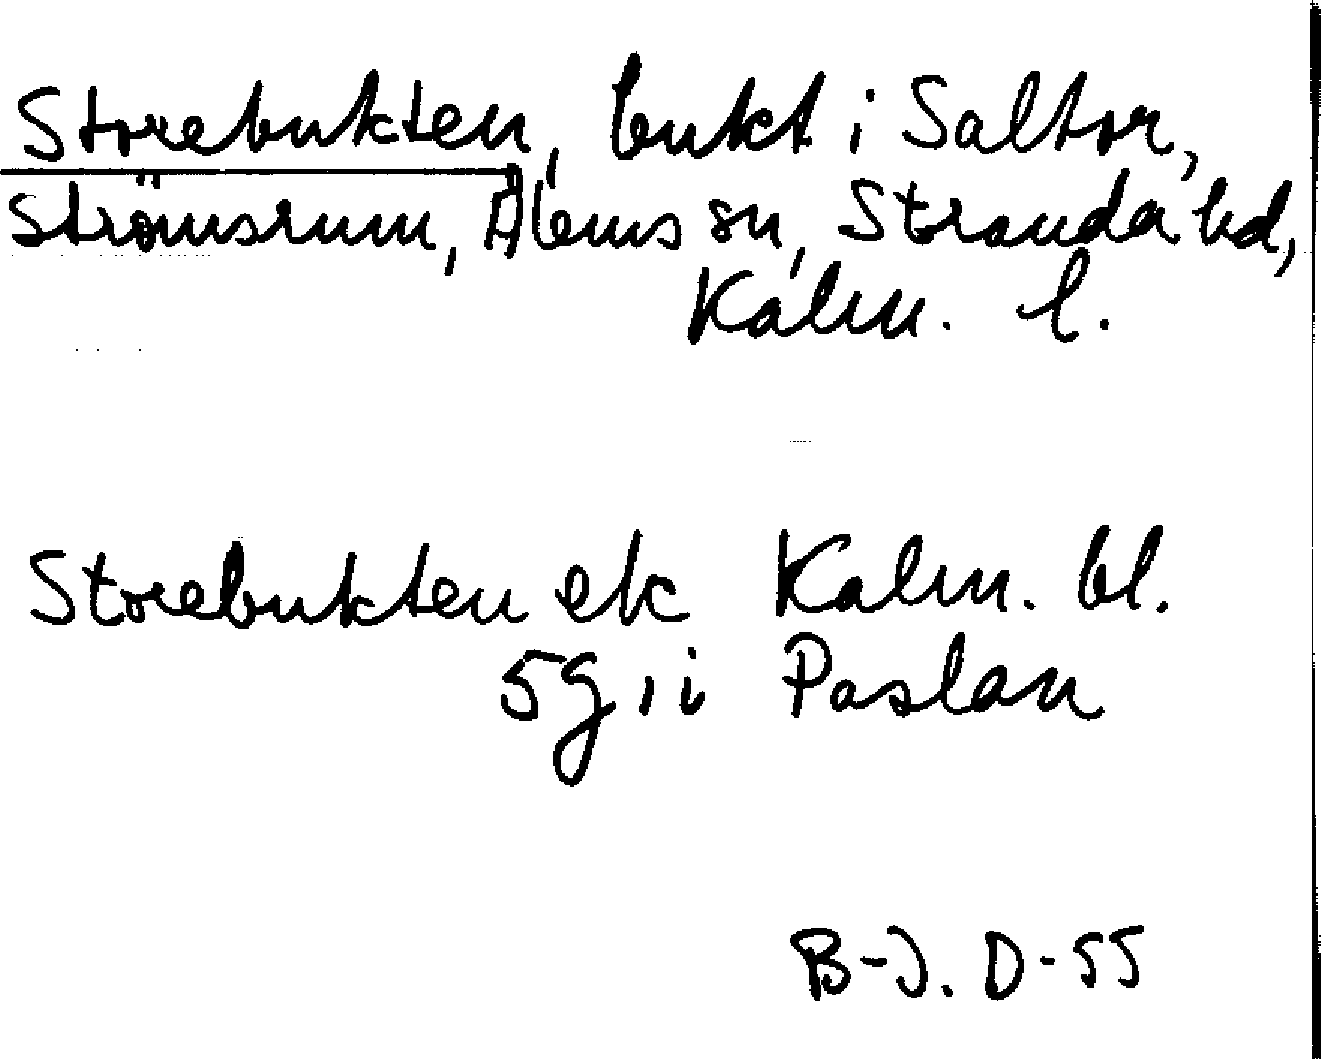 Storebukten, bukt i Saltor,
Strömsrum, Ålems sn, Stranda hd,
Kalm. l.
Storebukten ek Kalm. bl.
5g, i Paslan
B-J. D-55